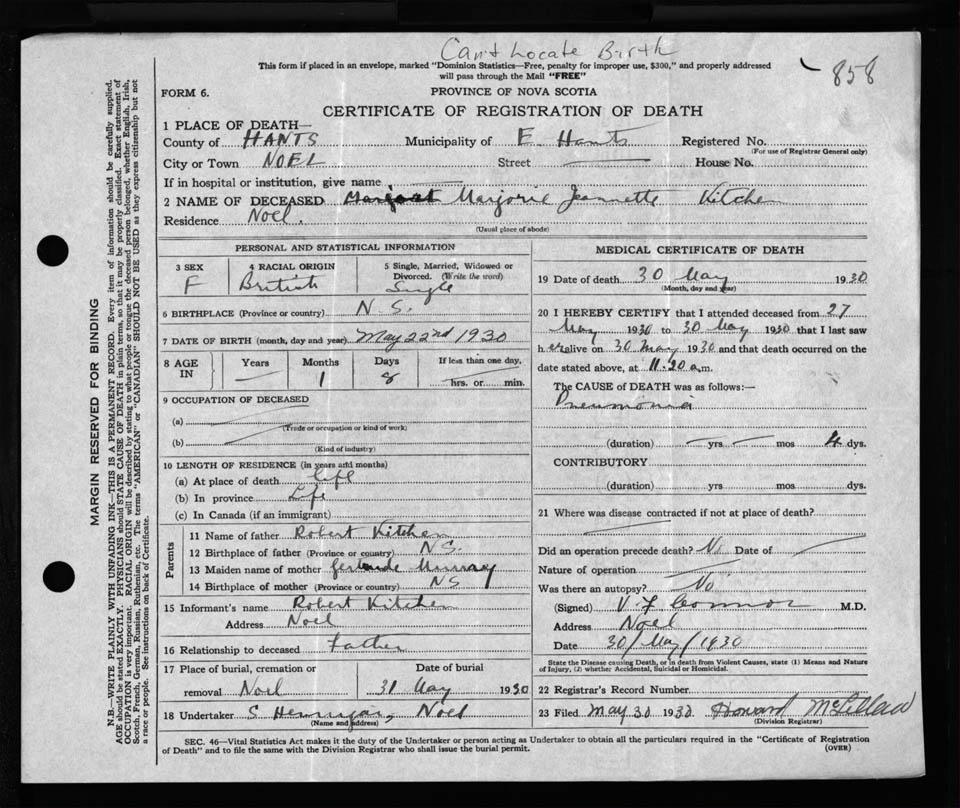 Can't Locate Birth
858
This form if placed in an envelope, marked "Dominion Statistics—Free, penalty for improper use, $300," and properly addressed
will pass through the Mail "FREE"
FORM 6.
PROVINCE OF NOVA SCOTIA
CERTIFICATE OF REGISTRATION OF DEATH
1 PLACE OF DEATH—
County of HANTS Municipality of E. Hants Registered No.
(For use of Registrar General only)
City or Town NOEL Street House No.
If in hospital or institution, give name
2 NAME OF DECEASED Margaret Marjorie Jeannette Kitchen
Residence Noel.
(Usual place of abode)
PERSONAL AND STATISTICAL INFORMATION
3 SEX F
4 RACIAL ORIGIN British
5 Single, Married, Widowed or Divorced. (Write the word) Single
6 BIRTHPLACE (Province or country) N.S.
7 DATE OF BIRTH (month, day and year) May 22nd 1930
8 AGE IN Years — Months 1 Days 8 If less than one day, hrs. or min.
9 OCCUPATION OF DECEASED
(a)
(Trade or occupation or kind of work)
(b)
(Kind of industry)
10 LENGTH OF RESIDENCE (in years and months)
(a) At place of death life
(b) In province Life
(c) In Canada (if an immigrant)
Parents
11 Name of father Robert Kitchen
12 Birthplace of father (Province or country) N.S.
13 Maiden name of mother Gertrude Murray
14 Birthplace of mother (Province or country) NS
15 Informant's name Robert Kitchen
Address Noel
16 Relationship to deceased Father
17 Place of burial, cremation or Date of burial
removal Noel 31 May 1930
18 Undertaker S. Noel
(Name and address)
MEDICAL CERTIFICATE OF DEATH
19 Date of death 30 May 1930
(Month, day and year)
20 I HEREBY CERTIFY that I attended deceased from 27
May 1930 to 30 May 1930 that I last saw
her alive on 30 May 1930 and that death occurred on the
date stated above, at 11.20 a.m.
The CAUSE OF DEATH was as follows:—
Pneumonia
(duration) — yrs — mos 4 dys.
CONTRIBUTORY
(duration) yrs. mos. dys.
21 Where was disease contracted if not at place of death?
Did an operation precede death? No Date of
Nature of operation
Was there an autopsy? No
(Signed) V F Connor M.D.
Address Noel
Date 30/May/1930
State the Disease causing Death, or in death from Violent Causes, state (1) Means and Nature
of Injury, (2) whether Accidental, Suicidal or Homicidal.
22 Registrar's Record Number
23 Filed May 30 1930 Howard McLellan
(Division Registrar)
SEC. 46—Vital Statistics Act makes it the duty of the Undertaker or person acting as Undertaker to obtain all the particulars required in the "Certificate of Registration
of Death" and to file the same with the Division Registrar who shall issue the burial permit.
(OVER)
MARGIN RESERVED FOR BINDING
N.B.—WRITE PLAINLY WITH UNFADING INK—THIS IS A PERMANENT RECORD. Every item of information should be carefully supplied.
AGE should be stated EXACTLY. PHYSICIANS should STATE CAUSE OF DEATH in plain terms, so that it may be properly classified. Exact statement of
OCCUPATION is very important. RACIAL ORIGIN will be described by stating to what people or tongue the deceased person belonged, whether English, Irish,
Scotch, French, German, Russian, Ruthenian, etc. The terms "AMERICAN" or "CANADIAN" SHOULD NOT BE USED as they express citizenship but not
a race or people. See instructions on back of Certificate.